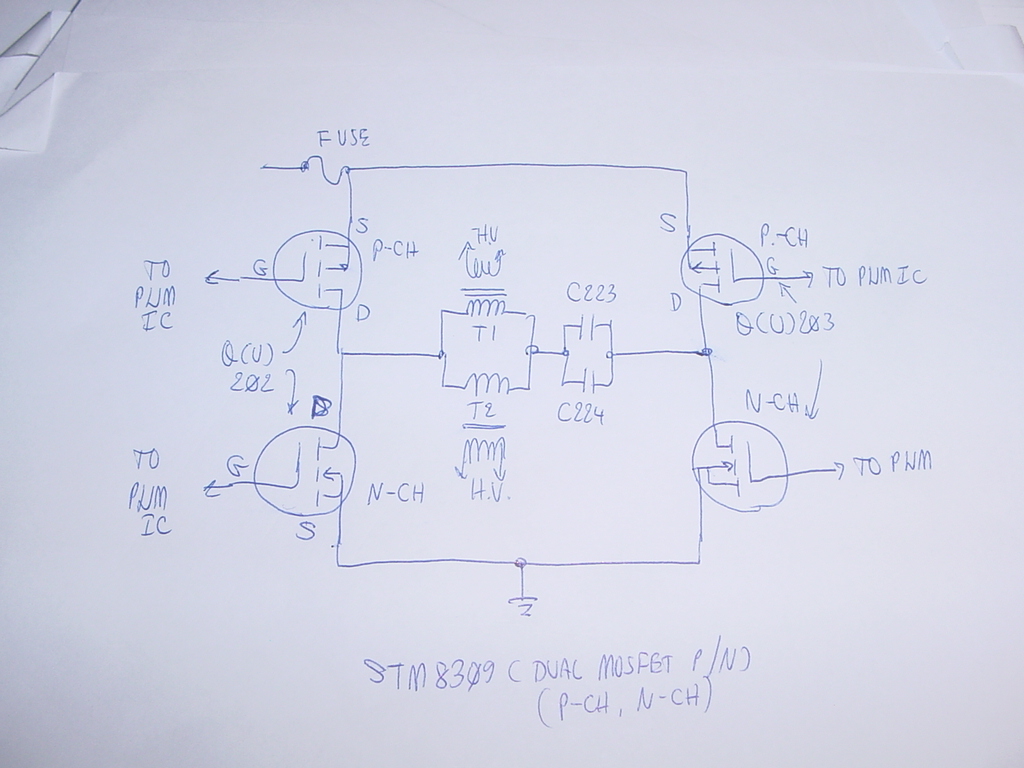 FUSE
S
P-CH
G
D
TO
PWM
IC
Q(U)
202
H.V
T1
T2
H.V.
C223
C224
S
P.-CH
G
D
TO PWM IC
Q(U)203
D
G
N-CH
S
TO
PWM
IC
N-CH
TO PWM
STM8309 (DUAL MOSFET P/N)
(P-CH, N-CH)